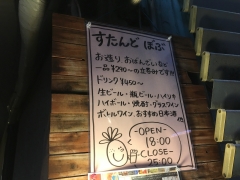 すたんど ぽぷ
お造り おばんざいなど
一品¥290〜の立呑み処です!!
ドリンク¥450〜
生ビール・瓶ビール・ハイリキ
ハイボール・焼酎・グラスワイン
ボトルワイン、おすすめ日本酒 他
-OPEN-
18:00
-CLOSE-
25:00